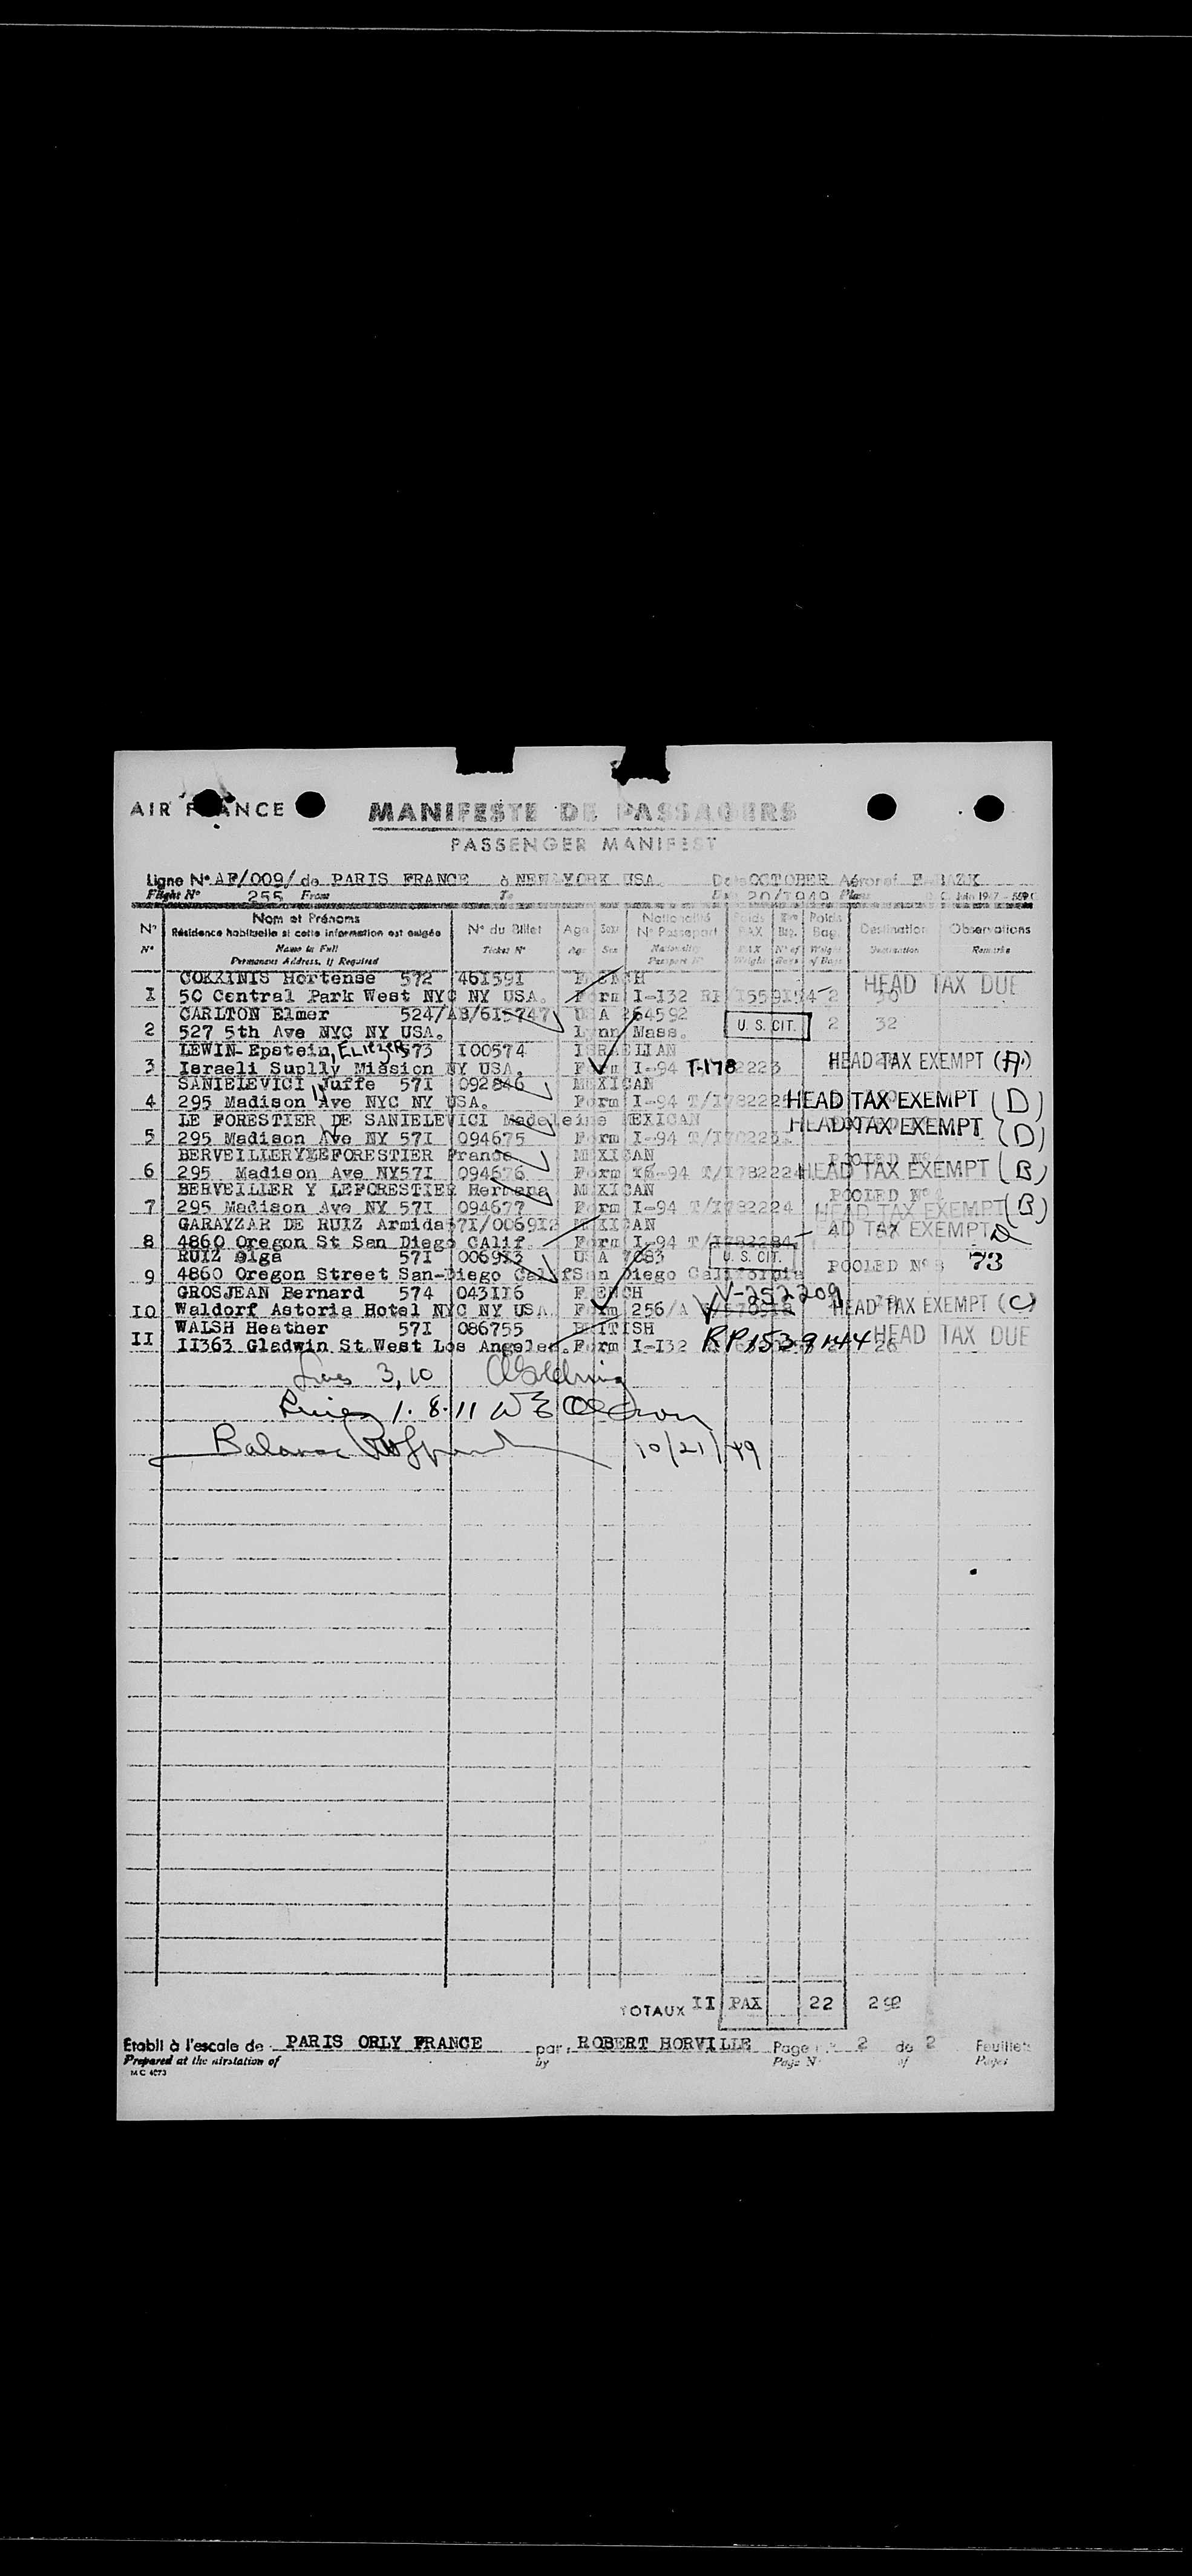 AIR FRANCE
MANIFESTE DE PASSAGERS
PASSENGER MANIFEST
Ligne N° AF/009/ de PARIS FRANCE à NEW YORK USA. Date OCTOBER Aéronef F-BAZK
Flight N° 255 From To 20/1949
N° Nom et Prénoms N° du Billet Age Sexe Nationalité Poids Poids Destination Observations
Résidence habituelle si cette information est exigée N° Passeport PAX Bag. Bag.
N° Name in Full Ticket N° Age Sex Nationality PAX N° of Weight Destination Remarks
Permanent Address, if Required Passport N° Weight Bags of Bags
COKKINIS Hortense 572 461591 FRENCH HEAD TAX DUE
I 50 Central Park West NYC NY USA. Form I-I32 2 30
CARLTON Elmer 524/AB/615747 USA 264592
2 527 5th Ave NYC NY USA. Lynn Mass. U. S. CIT. 2 32
LEWIN-Epstein, ELIEZER 573 I00574 ISRAELIAN
3 Israeli Suplly Mission NY USA. Form I-94 T-178 2223 HEAD TAX EXEMPT (A)
SANIELEVICI Juffe 57I 092846 MEXICAN
4 295 Madison Ave NYC NY USA. Form I-94 HEAD TAX EXEMPT (D)
LE FORESTIER DE SANIELEVICI Madeleine MEXICAN
5 295 Madison Ave NY 57I 094675 Form I-94 HEAD TAX EXEMPT (D)
BERVEILLERYLEFORESTIER France MEXICAN
6 295 Madison Ave NY57I 094676 Form I-94 T/I782224 HEAD TAX EXEMPT (B)
BERVEILLIER Y LEFORESTIER Herbena MEXICAN POOLED N°
7 295 Madison Ave NY 57I 094677 Form I-94 T/I782224 HEAD TAX EXEMPT (B)
GARAYZAR DE RUIZ Armida 57I/006912 MEXICAN AD TAX EXEMPT
8 4860 Oregon St San Diego Calif. Form I-94
RUIZ Olga 57I 006913 USA 7083 U. S. CIT. POOLED N° 73
9 4860 Oregon Street San-Diego Calif San Diego California
GROSJEAN Bernard 574 043II6 FRENCH V-252209
I0 Waldorf Astoria Hotel NYC NY USA. Form 256/A HEAD TAX EXEMPT (C)
WALSH Heather 57I 086755 BRITISH
II II363 Gladwin St West Los Angeles. Form I-I32 RP1539144 HEAD TAX DUE
Lines 3, 10
Lines 1. 8. 11
Balance 10/21/49
TOTAUX II PAX 22
Etabli à l'escale de PARIS ORLY FRANCE par ROBERT HORVILLE Page 2 de 2 Feuillets
Prepared at the airstation of by Page N° of Pages
MC 4073